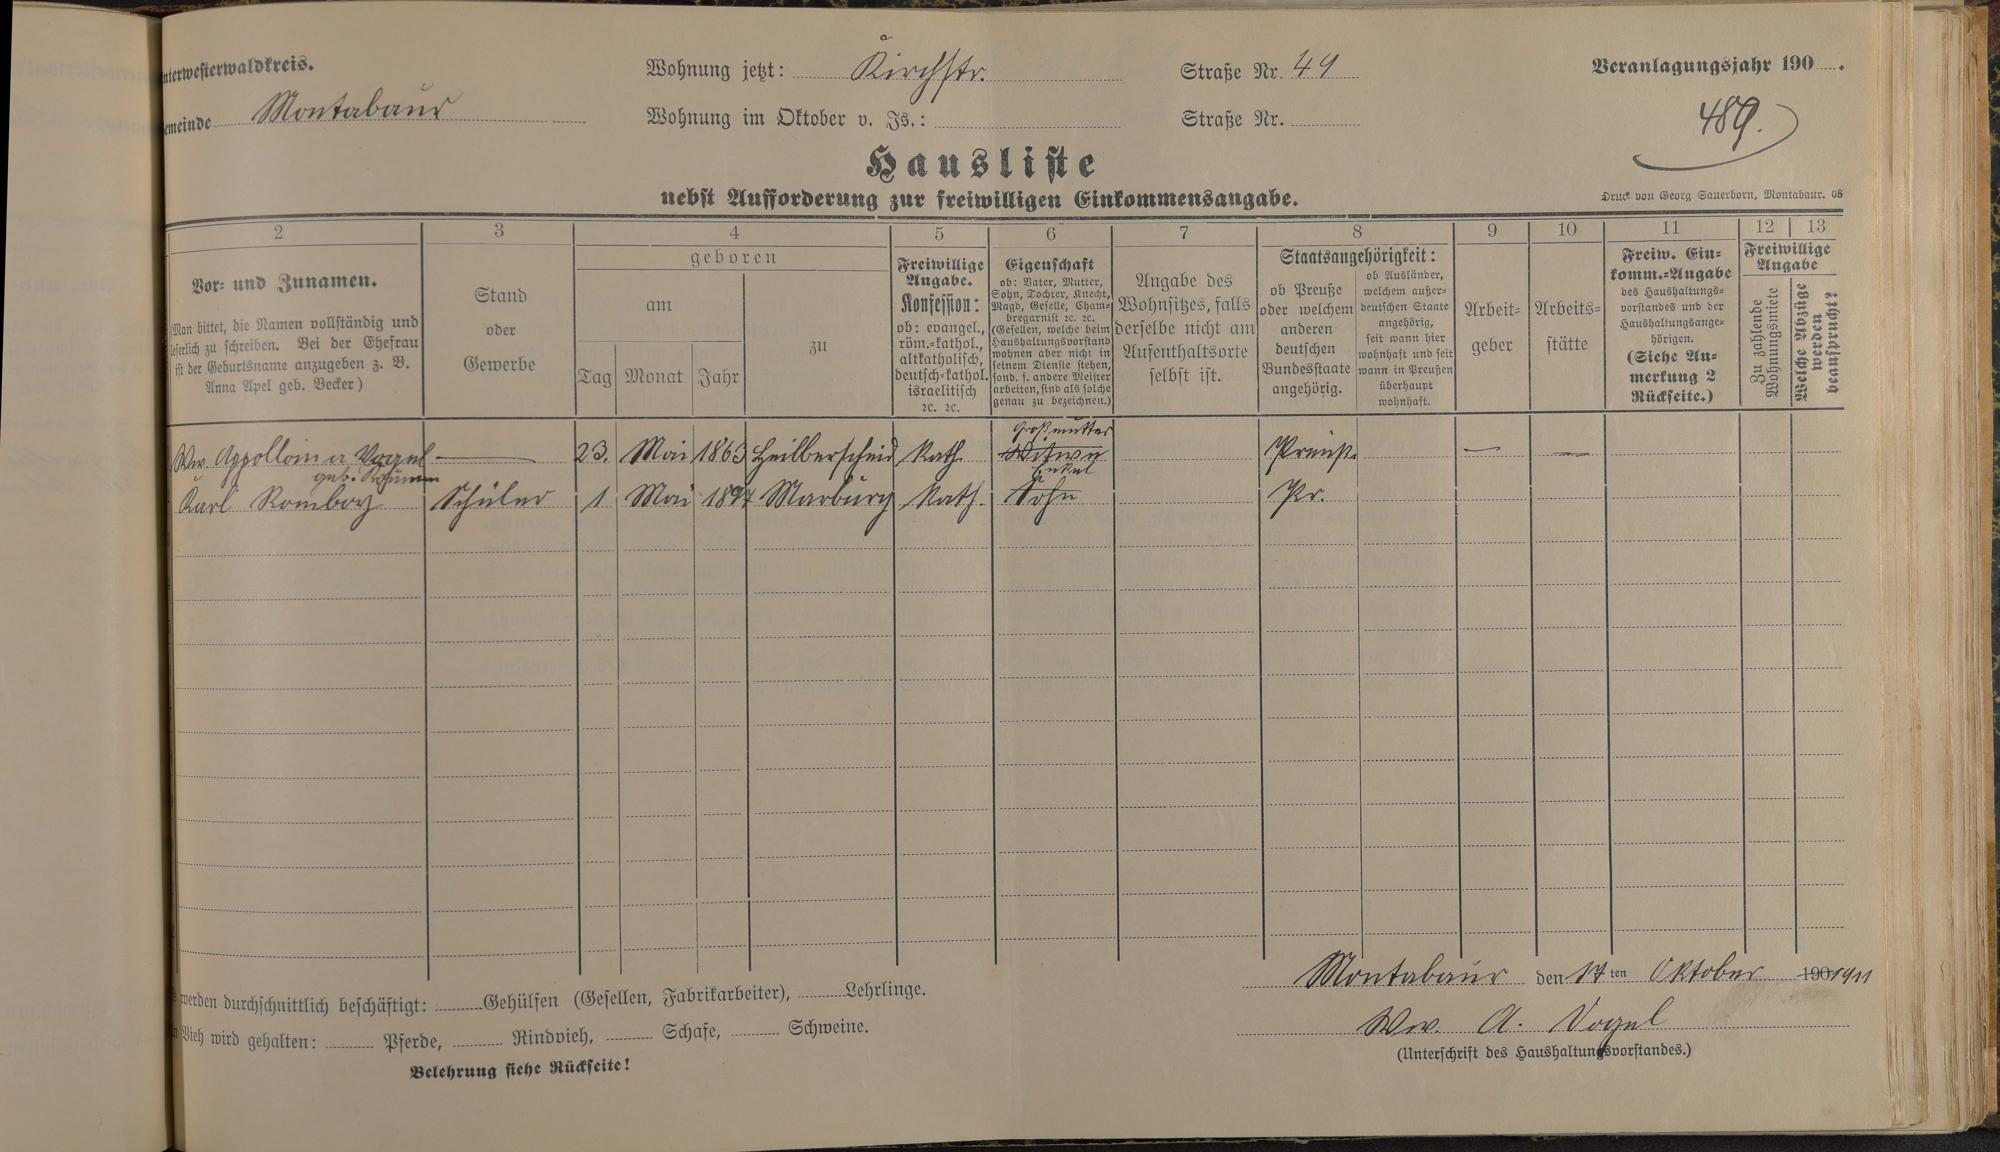 nterwesterwaldkreis.
emeinde Montabaur
Wohnung jetzt: Kirchstr. Straße Nr. 49
Wohnung im Oktober v. Js.: Straße Nr.
Veranlagungsjahr 190 .
489.
Hausliste
nebst Aufforderung zur freiwilligen Einkommensangabe.
Druck von Georg Sauerborn, Montabaur. 08
2 3 4 5 6 7 8 9 10 11 12 13
Vor- und Zunamen.
(Man bittet, die Namen vollständig und
leserlich zu schreiben. Bei der Ehefrau
ist der Geburtsname anzugeben z. B.
Anna Apel geb. Becker)
Stand
oder
Gewerbe
geboren
am
Tag Monat Jahr
zu
Freiwillige
Angabe.
Konfession:
ob: evangel.,
röm.-kathol.,
altkatholisch,
deutsch-kathol.
israelitisch
ꝛc. ꝛc.
Eigenschaft
ob: Vater, Mutter,
Sohn, Tochter, Knecht,
Magd, Geselle, Cham-
bregarnist ꝛc. ꝛc.
(Gesellen, welche beim
Haushaltungsvorstand
wohnen aber nicht in
seinem Dienste stehen,
sond. f. andere Meister
arbeiten, sind als solche
genau zu bezeichnen.)
Angabe des
Wohnsitzes, falls
derselbe nicht am
Aufenthaltsorte
selbst ist.
Staatsangehörigkeit:
ob Preuße
oder welchem
anderen
deutschen
Bundesstaate
angehörig.
ob Ausländer,
welchem außer-
deutschen Staate
angehörig,
seit wann hier
wohnhaft und seit
wann in Preußen
überhaupt
wohnhaft.
Arbeit-
geber
Arbeits-
stätte
Freiw. Ein-
komm.-Angabe
des Haushaltungs-
vorstandes und der
Haushaltungsange-
hörigen.
(Siehe An-
merkung 2
Rückseite.)
Freiwillige
Angabe
Zu zahlende
Wohnungsmiete
Welche Abzüge
werden
beansprucht?
Großmutter
Ww. Appollonia Vogel — 23. Mai 1863 Heilberscheid Kath. Witwe Preuß. — —
geb. Enkel
Karl Romborg Schüler 1 Mai 1897 Marburg Kath. Sohn Pr.
Montabaur den 17ten Oktober 190 1911
Ww. A. Vogel
(Unterschrift des Haushaltungsvorstandes.)
werden durchschnittlich beschäftigt: Gehülfen (Gesellen, Fabrikarbeiter), Lehrlinge.
Vieh wird gehalten: Pferde, Rindvieh, Schafe, Schweine.
Belehrung siehe Rückseite!